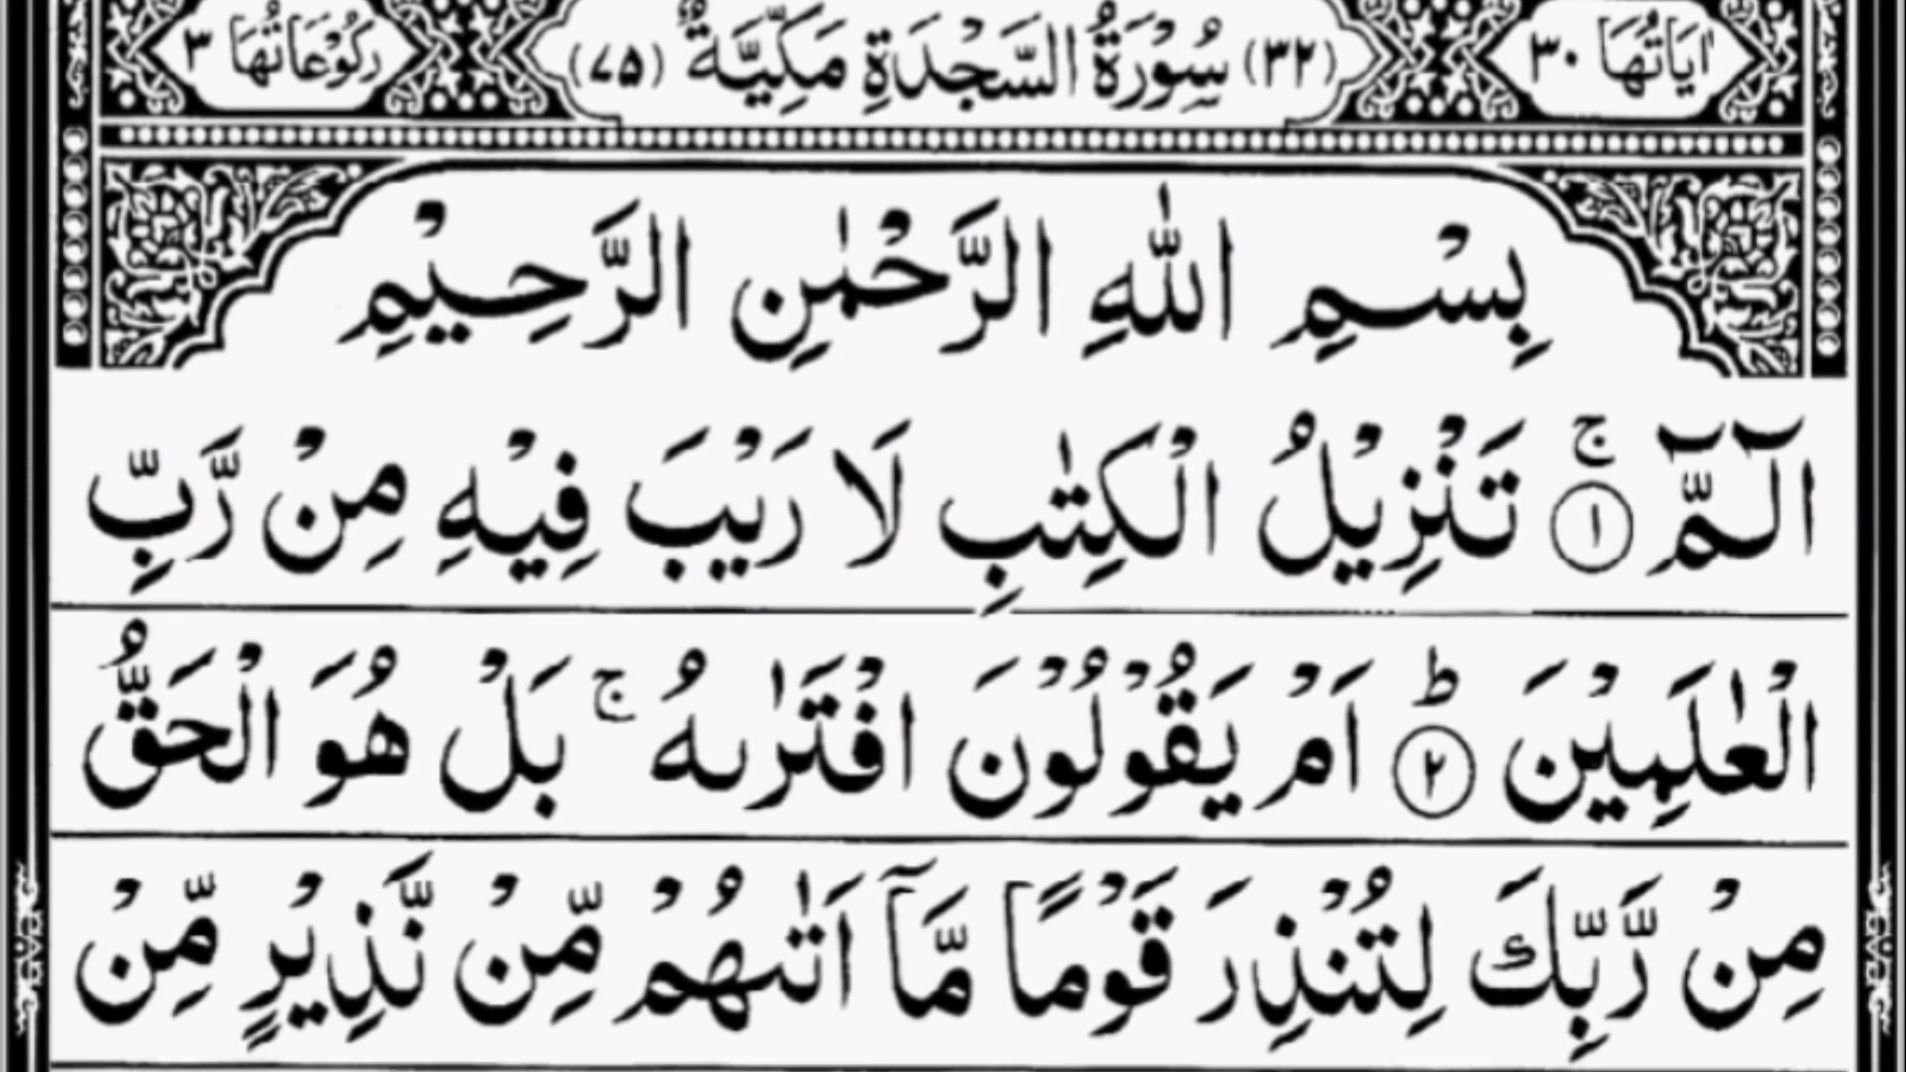 اٰيَاتُهَا ٣٠ (٣٢) سُوْرَةُ السَّجْدَةِ مَكِّيَّةٌ (٧٥) رُكُوْعَاتُهَا ٣
بِسْمِ اللّٰهِ الرَّحْمٰنِ الرَّحِيْمِ
الٓمّٓ ۚ ١ تَنْزِيْلُ الْكِتٰبِ لَا رَيْبَ فِيْهِ مِنْ رَّبِّ
الْعٰلَمِيْنَ ؕ ٢ اَمْ يَقُوْلُوْنَ افْتَرٰىهُ ۚ بَلْ هُوَ الْحَقُّ
مِنْ رَّبِّكَ لِتُنْذِرَ قَوْمًا مَّاۤ اَتٰىهُمْ مِّنْ نَّذِيْرٍ مِّنْ